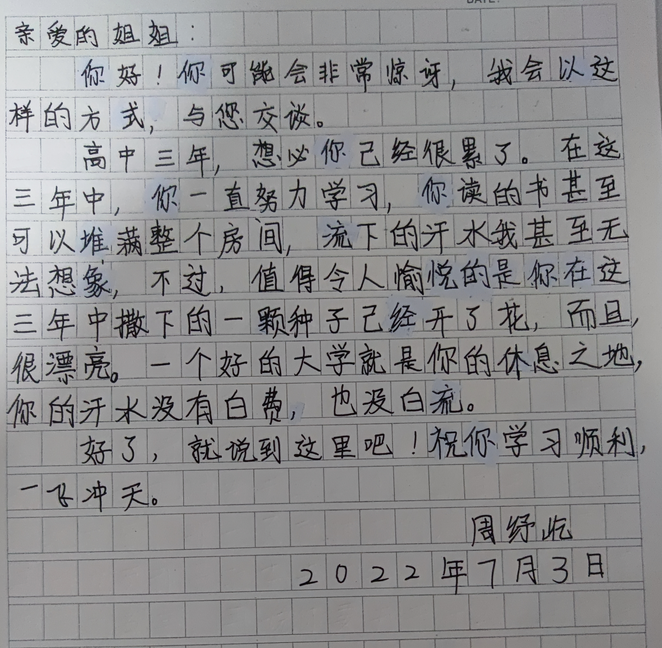 亲爱的姐姐：
你好！你可能会非常惊讶，我会以这
样的方式，与您交谈。
高中三年，想必你已经很累了。在这
三年中，你一直努力学习，你读的书甚至
可以堆满整个房间，流下的汗水我甚至无
法想象，不过，值得令人愉悦的是你在这
三年中撒下的一颗种子已经开了花，而且，
很漂亮。一个好的大学就是你的休息之地，
你的汗水没有白费，也没白流。
好了，就说到这里吧！祝你学习顺利，
一飞冲天。
周纾屹
2022年7月3日